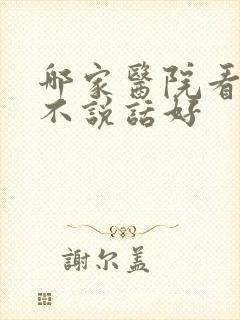 哪家醫院看
不説話好
謝尔盖